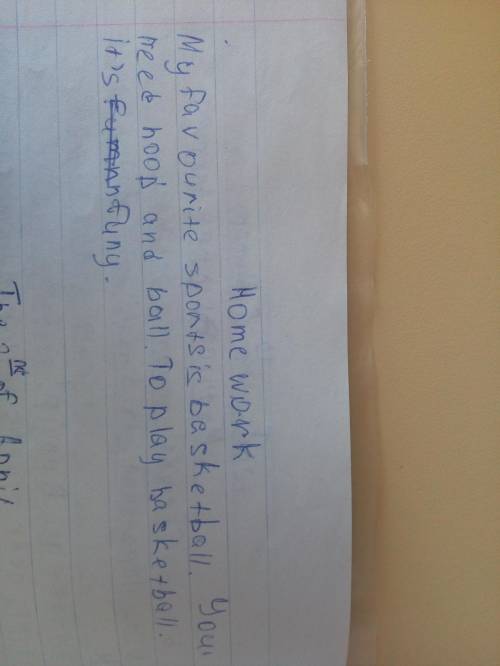 Home work
My favourite sports is basketball. You
need hoop and ball. To play basketball.
it's funy.
The 2nd of April